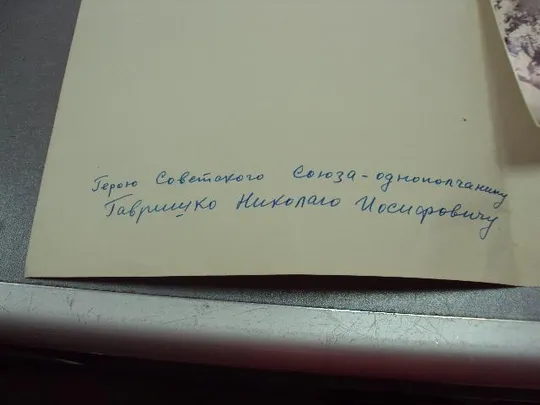 Герою Советского Союза-однополчанину
Гаврищко Николаю Иосифовичу